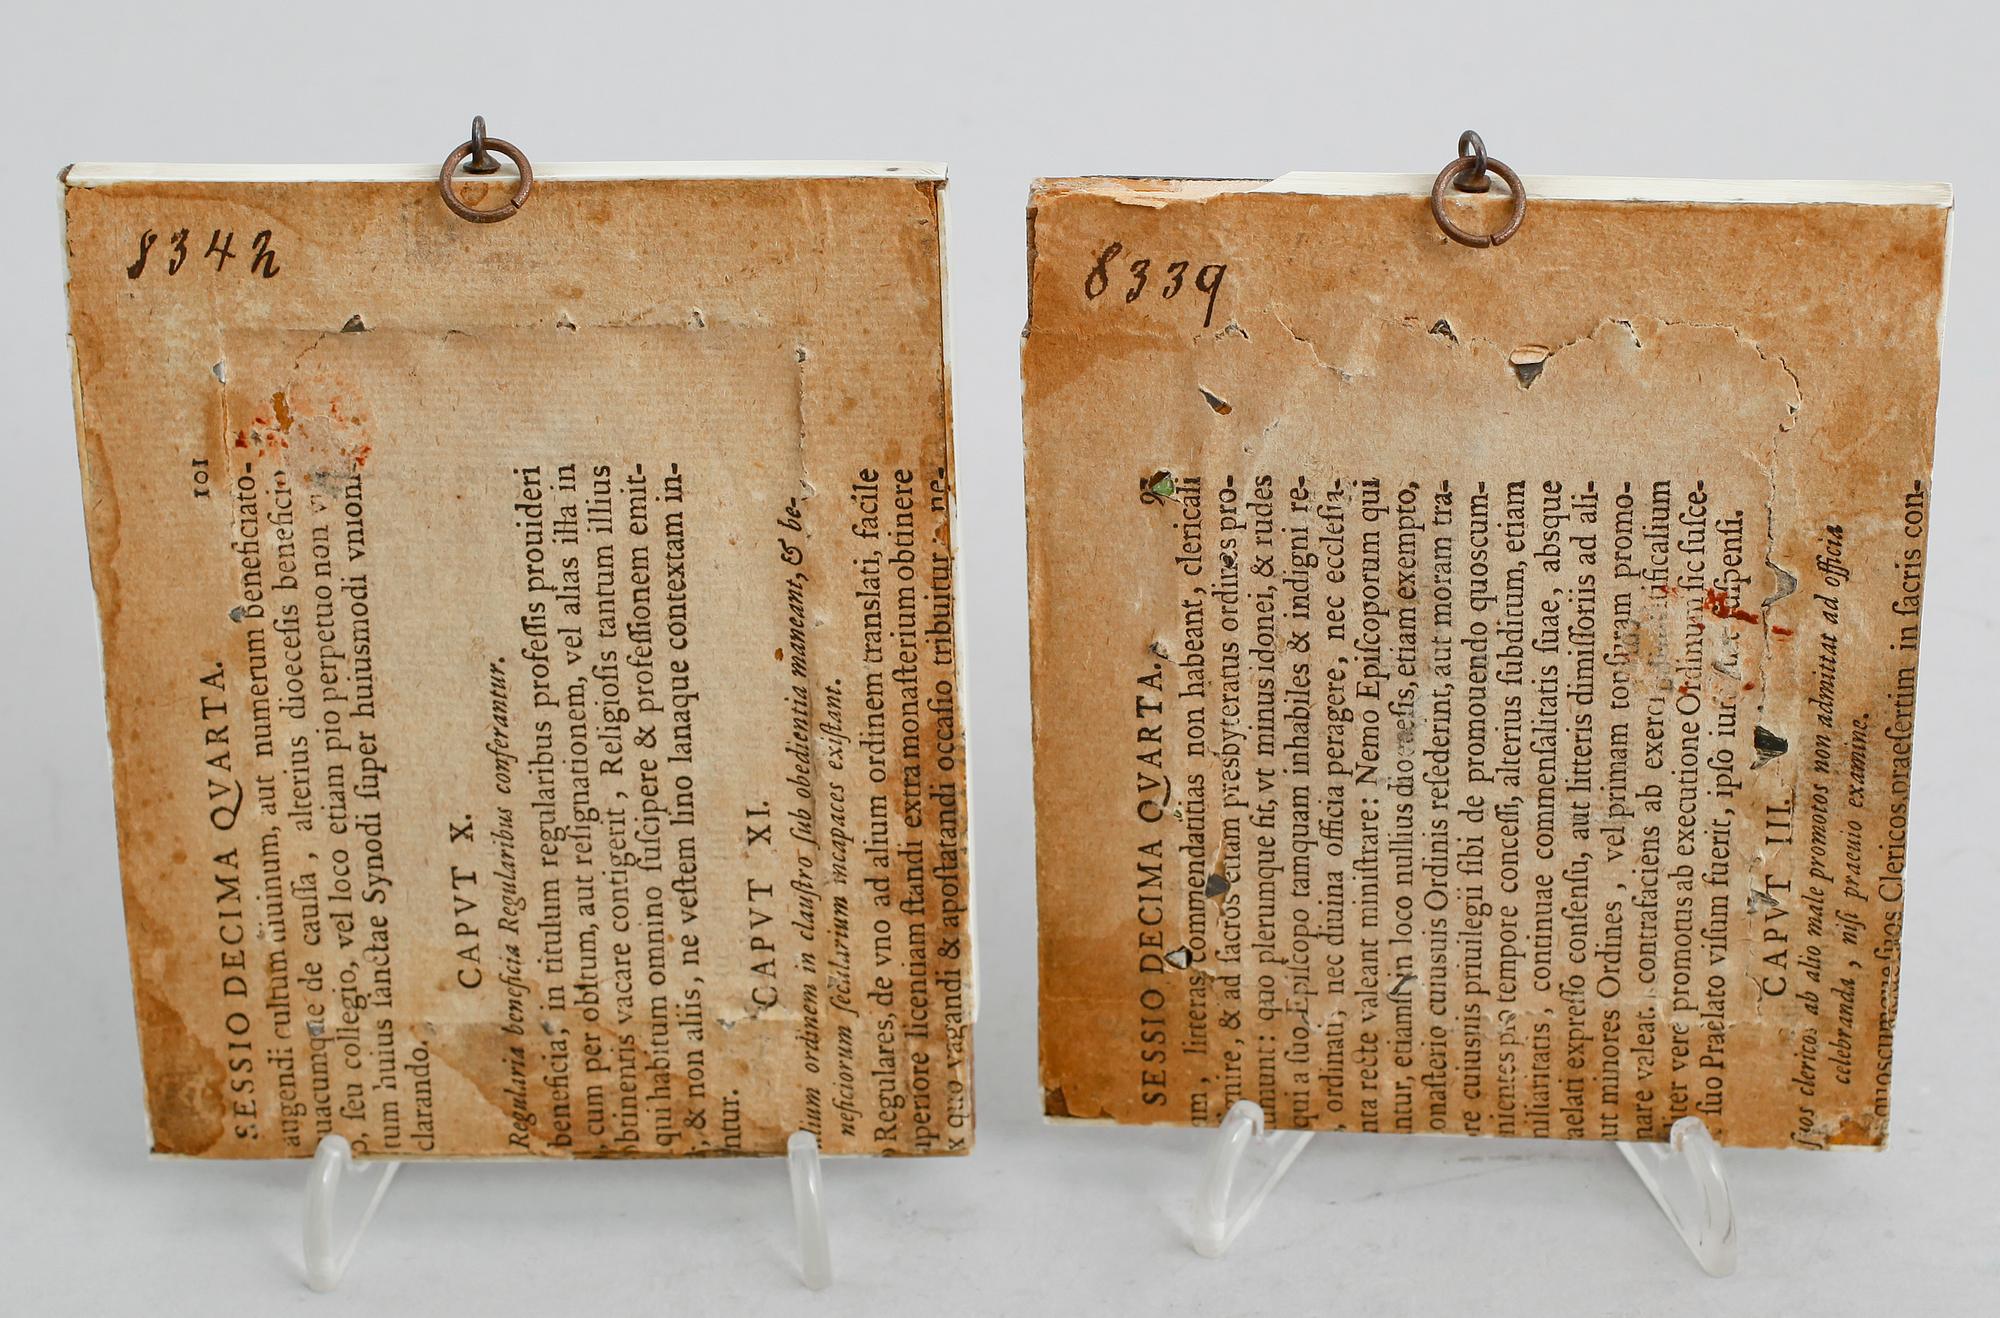 8342
101
SESSIO DECIMA QVARTA.
augendi cultum diuinum, aut numerum beneficiato-
uacunque de caussa, alterius dioecesis benefici
, seu collegio, vel loco etiam pio perpetuo non
tum huius sanctae Synodi super huiusmodi vnioni-
clarando.
CAPVT X.
Regularia beneficia Regularibus conferantur.
beneficia, in titulum regularibus professis prouideri
, cum per obitum, aut resignationem, vel alias illa in
obtinentis vacare contigerit, Religiosis tantum illius
qui habitum omnino suscipere & professionem emit-
, & non aliis, ne vestem lino lanaque contextam in-
ntur.
CAPVT XI.
lium ordinem in claustro sub obedientia maneant, & be-
neficiorum secularium incapaces existant.
Regulares, de vno ad alium ordinem translati, facile
uperiore licentiam standi extra monasterium obtinere
x quo vagandi & apostatandi occasio tribuitur: ne-
8339
SESSIO DECIMA QVARTA.
m, litteras commendatitias non habeant, clericali
nire, & ad sacros etiam presbyteratus ordines pro-
munt: quo plerumque fit, vt minus idonei, & rudes
qui a suo Episcopo tamquam inhabiles & indigni re-
, ordinati, nec diuina officia peragere, nec ecclesia-
nta recte valeant ministrare: Nemo Episcoporum qui
ntur, etiamsi in loco nullius dioecesis, etiam exempto,
onasterio cuiusuis Ordinis resederint, aut moram tra-
re cuiusuis priuilegii sibi de promouendo quoscum-
nientes pro tempore concessi, alterius subditum, etiam
miliaritatis, continuae commensalitatis suae, absque
aelati expresso consensu, aut litteris dimissoriis ad ali-
ut minores Ordines, vel primam tonsuram promo-
nare valeat. contrafaciens ab exerci pontificalium
liter vere promotus ab executione Ordinum sic susce-
suo Praelato visum fuerit, ipso iure suspensi.
CAPVT III.
suos clericos ab alio male promotos non admittat ad officia
celebranda, nisi praeuio examine.
quoscumque suos Clericos, praesertim in sacris con-